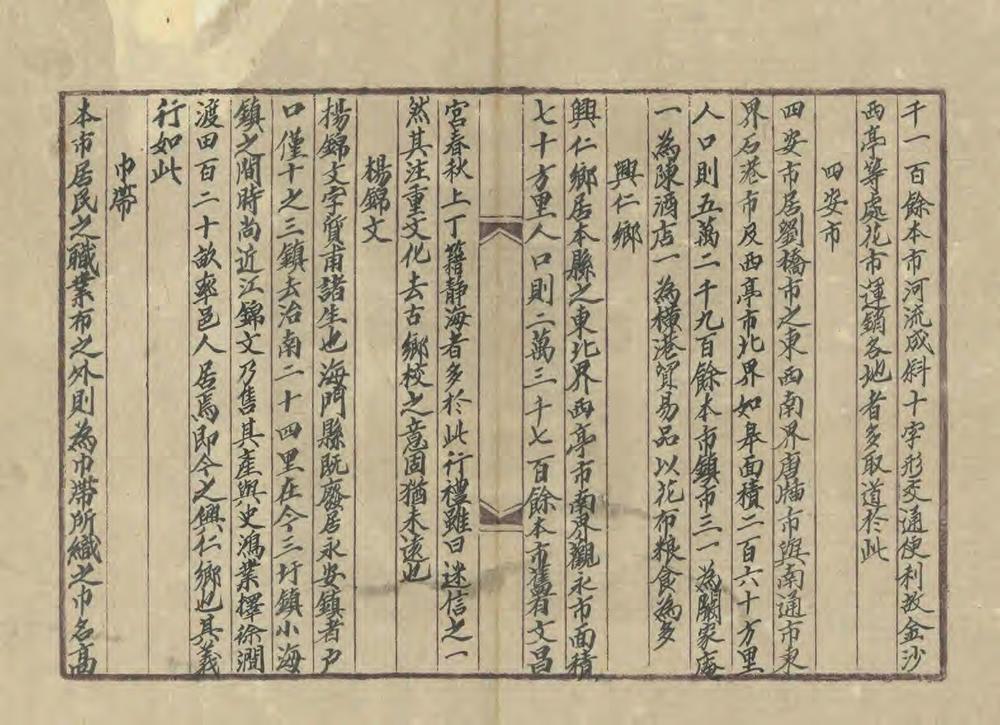 千一百餘本市河流成斜十字形交通便利故金沙
西亭等處花市運銷各地者多取道於此
四安市
四安市居劉橋市之東西南界唐牐市與南通市東
界石港市及西亭市北界如皋面積二百六十方里
人口則五萬二千九百餘本市鎮市三一為關家庵
一為陳酒店一為橫港貿易品以花布粮食為多
興仁鄉
興仁鄉居本縣之東北界西亭市南界觀永市面積
七十方里人口則二萬三千七百餘本市舊有文昌
宮春秋上丁籍静海者多於此行禮雖曰迷信之一
然其注重文化去古鄉校之意固猶未遠也
楊錦文
楊錦文字質甫諸生也海門縣既廢居永安鎮者戶
口僅十之三鎮去治南二十四里在今三圩鎮小海
鎮之間時尚近江錦文乃售其產與史鴻業擇徐澗
渡田百二十畝率邑人居焉即今之興仁鄉也其義
行如此
巾帶
本市居民之職業布之外則為巾帶所織之巾名高